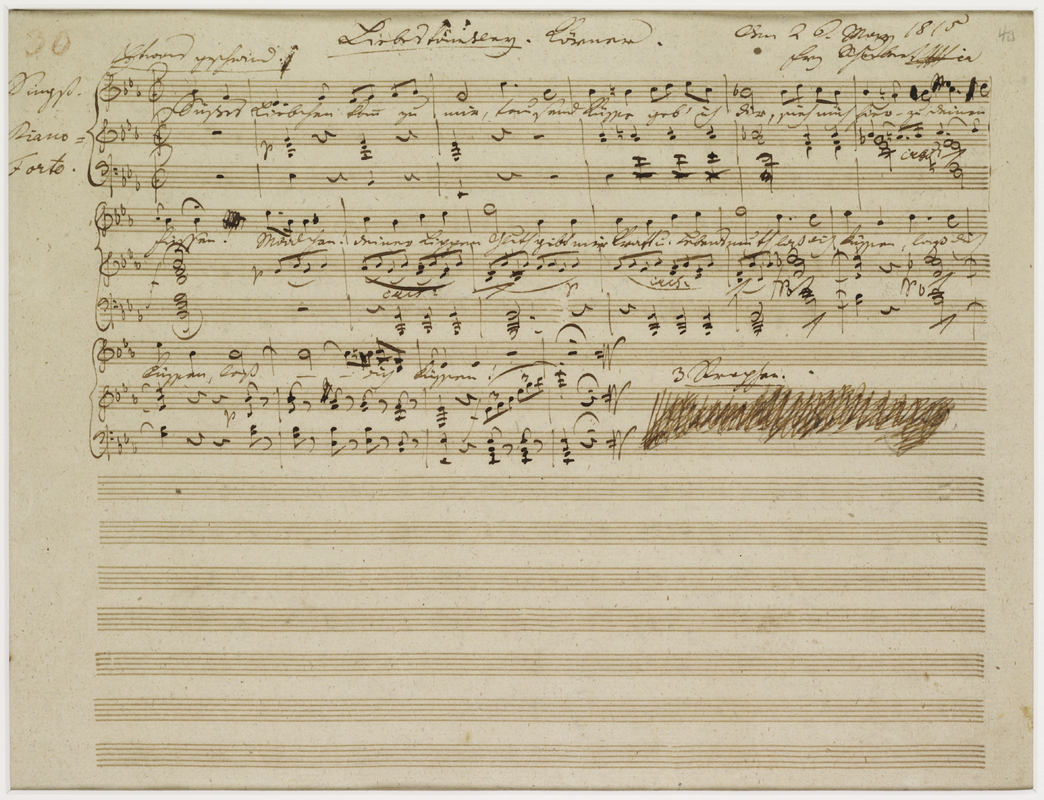 30
Liebständeley. Körner. Den 26. May 1815
Etwas geschwind. Frz Schubert
Singst.
Süßes Liebchen komm zu mir, tausend Küsse geb' ich dir, sieh mich hier zu deinen
Piano-
Forte.
cresc.
Füssen. Mädchen deiner Lippen Glut gibt mir Kraft u. Lebensmuth lass dich küssen, lass dich
cresc. cresc.
küssen, lass dich küssen!
3 Strophen.